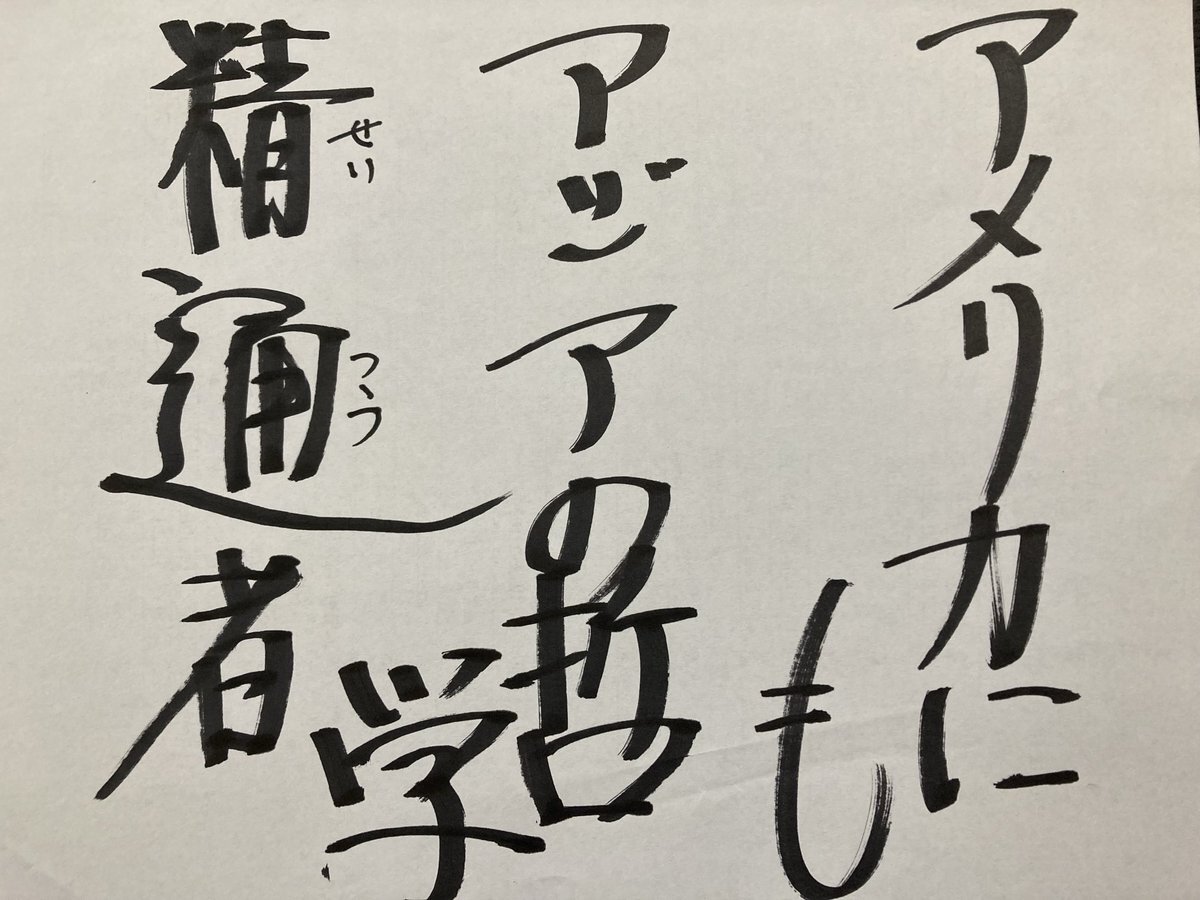 アメリカにも
アジアの哲学
精通者
せい
つう